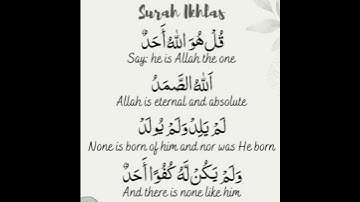 Surah Ikhlas
قُلْ هُوَ اللهُ أَحَدٌ
Say: he is Allah the one
اَللهُ الصَّمَدُ
Allah is eternal and absolute
لَمْ يَلِدْ وَلَمْ يُولَدْ
None is born of him and nor was He born
وَلَمْ يَكُنْ لَّهُ كُفُوًا أَحَدٌ
And there is none like him